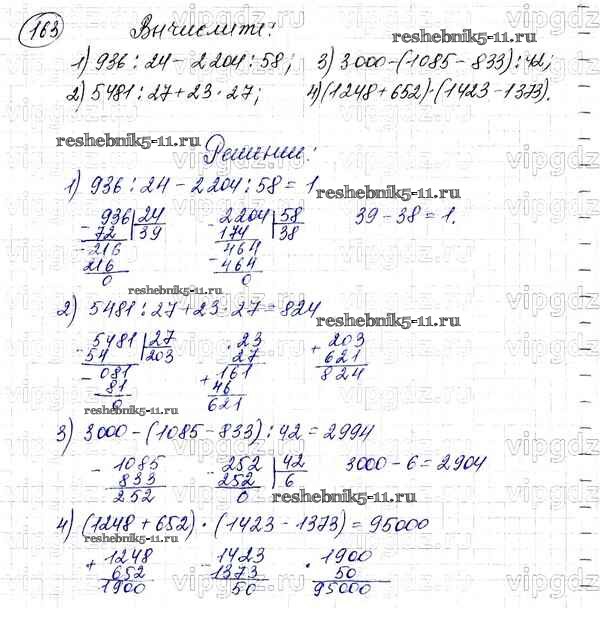 163 Вычислите:
1) 936 : 24 - 2204 : 58; 3) 3000 - (1085 - 833) : 42;
2) 5481 : 27 + 23 · 27; 4) (1248 + 652) · (1423 - 1373).
reshebnik5-11.ru
reshebnik5-11.ru
Решение:
1) 936 : 24 - 2204 : 58 = 1
reshebnik5-11.ru
- 936 | 24 - 2204 | 58 39 - 38 = 1.
72 | 39 174 | 38
- 216 - 464
216 464
0 0
reshebnik5-11.ru
2) 5481 : 27 + 23 · 27 = 824
reshebnik5-11.ru
- 5481 | 27 · 23 + 203
54 | 203 27 621
- 081 + 161 824
81 46
0 621
reshebnik5-11.ru
3) 3000 - (1085 - 833) : 42 = 2994
- 1085 - 252 | 42 3000 - 6 = 2904
833 252 | 6
252 0
reshebnik5-11.ru
4) (1248 + 652) · (1423 - 1373) = 95000
reshebnik5-11.ru
+ 1248 - 1423 · 1900
652 1373 50
1900 50 95000
vipgdz